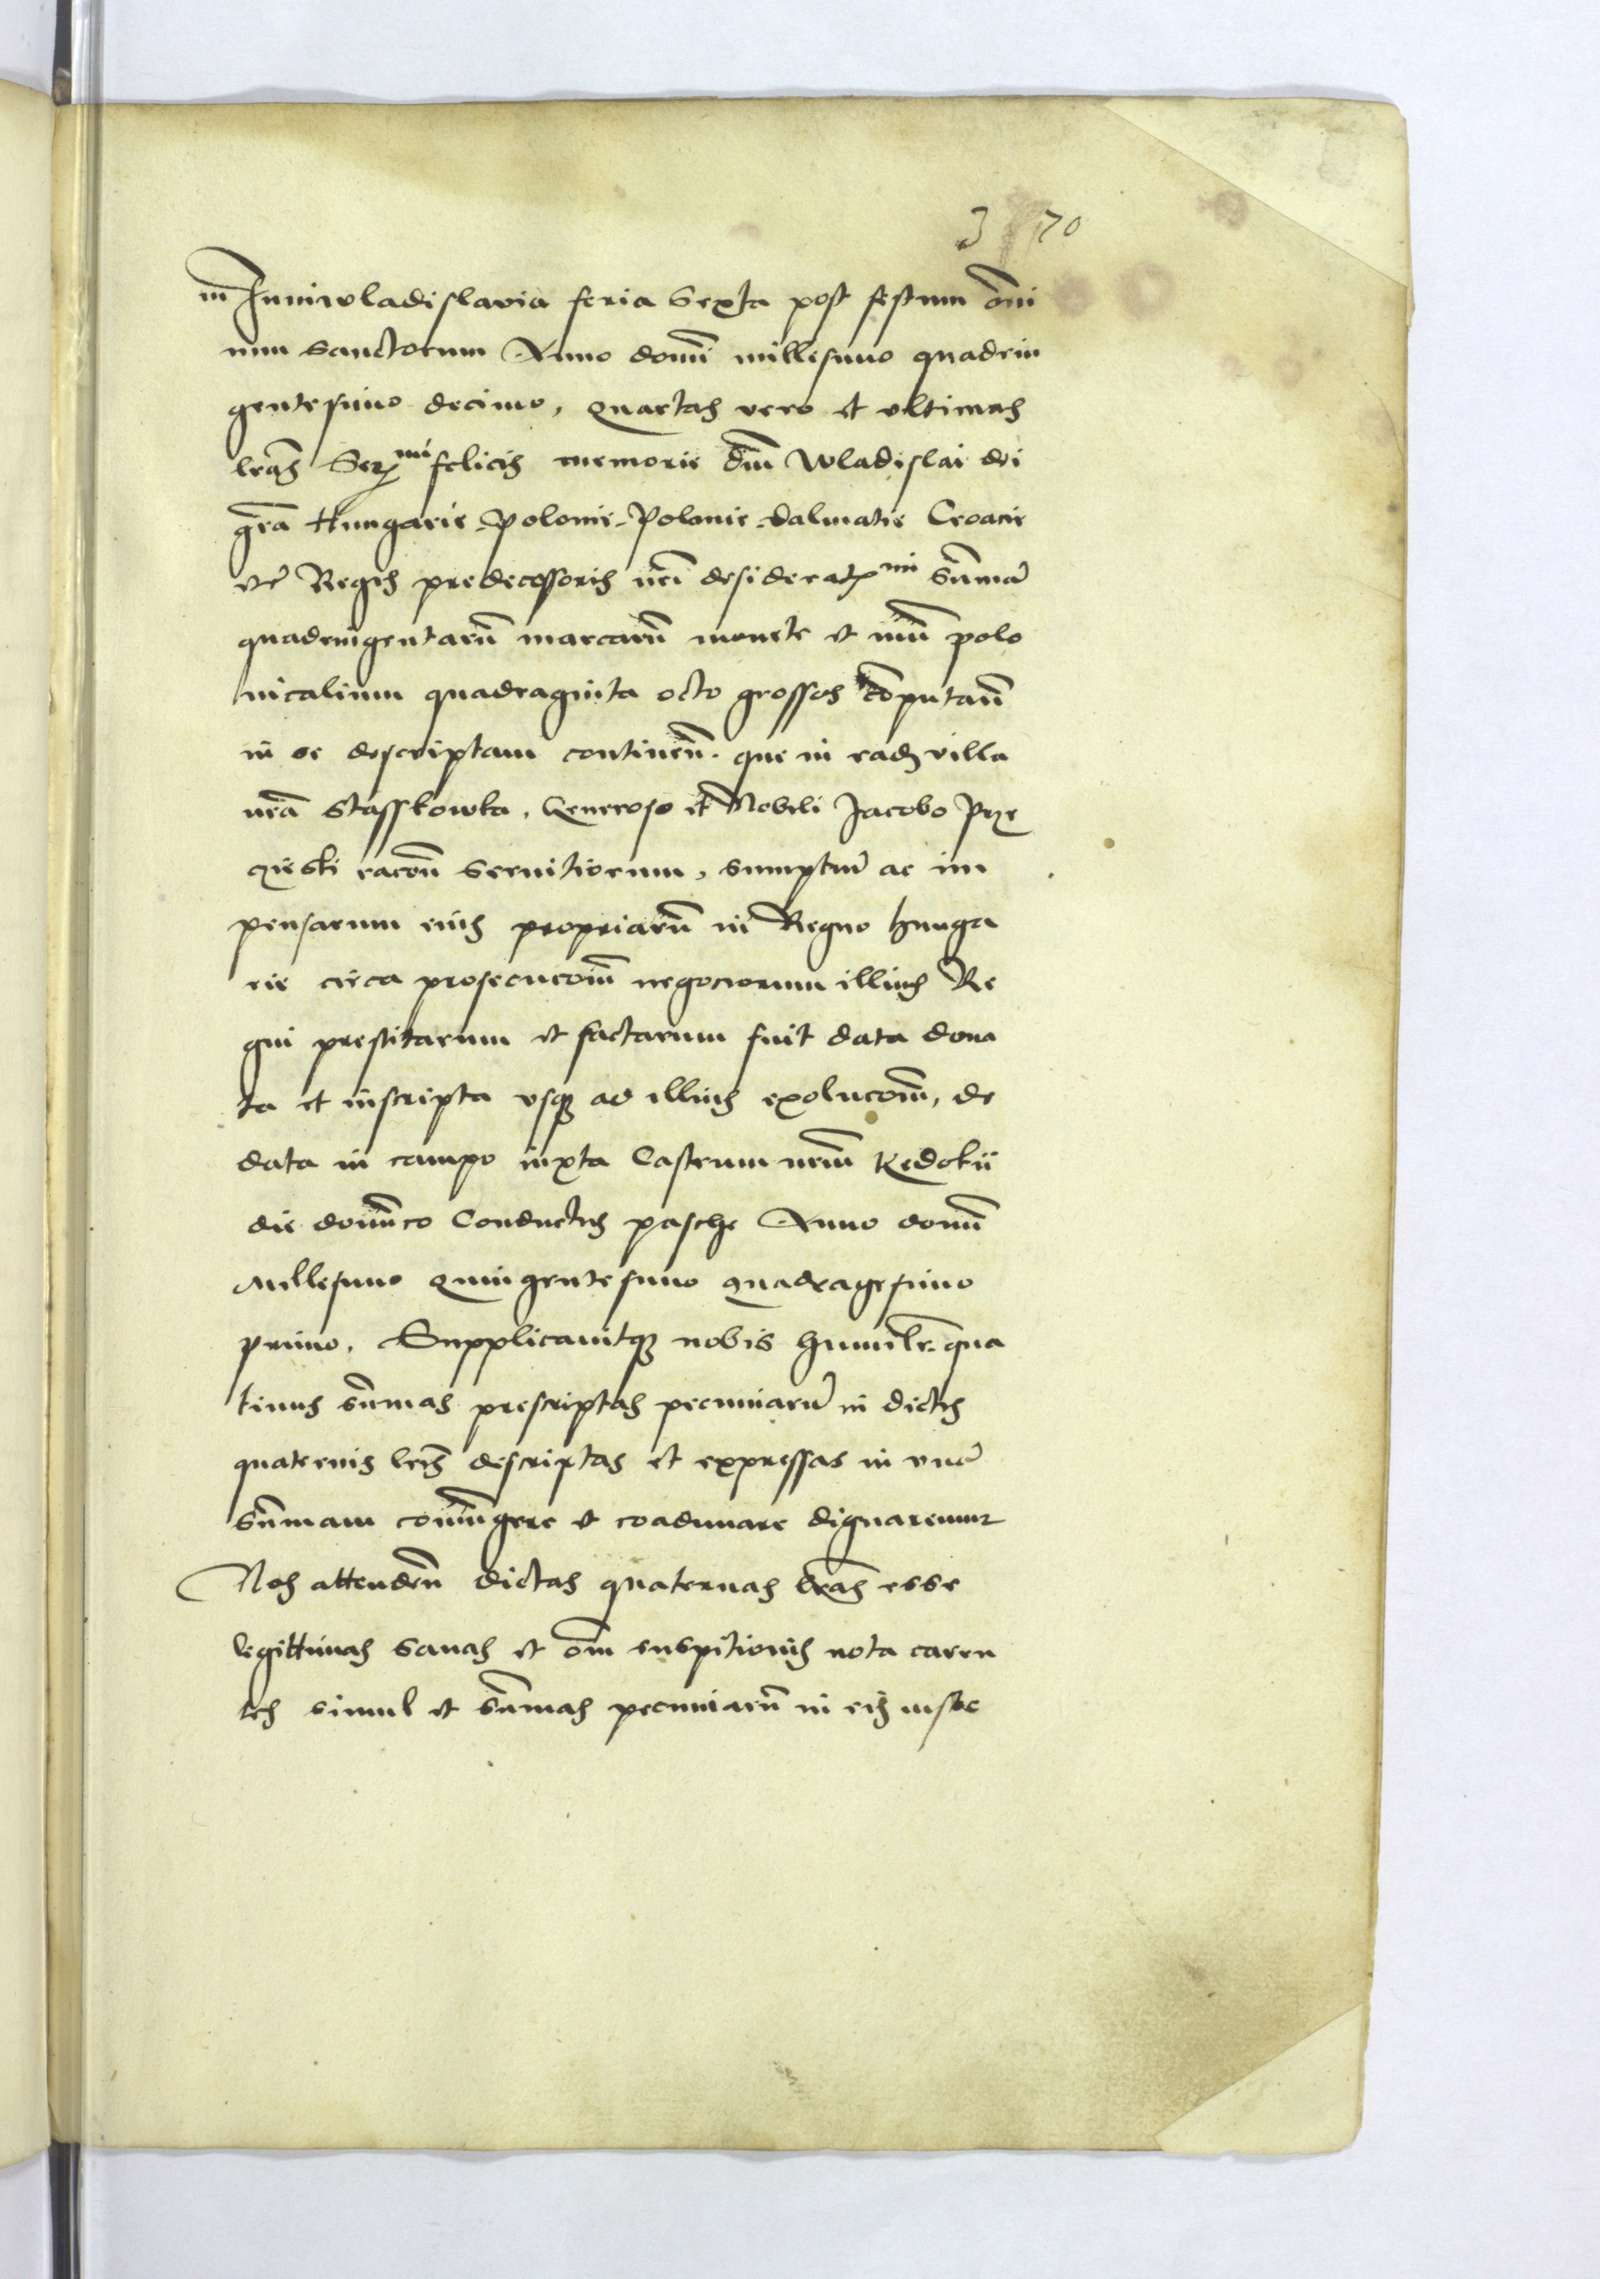 3 70
in Juniwladislavia feria Sexta post festum om̅i
num sanctorum Anno domi̅ millesimo quadrin
gentesimo decimo, quartas vero et ultimas
lrãs Serᵐⁱ felicis memorie dni̅ Wladislai dei
gra̅ Hungarie Polonie Polonie dalmatie Croacie
etc̃ Regis predecessoris nri̅ desideratᵐⁱ sum̅ã
quadringentaru̅ marcaru̅ monete et nu̅i polo
nicalium quadraginta octo grossos co̅putan̅
in se descriptam continen̅. que in eadẽ villa
nra̅ Stasskowka, Generoso et Nobili Jacobo Prze
czieski racõn servitiorum, sumptuũ ac im
pensarum eius propriaru̅ in Regno hunga
rie circa prosecucõem negociorum illius Re
gni prestitarum et factarum fuit data dona
ta et inscripta usq ad illius exolucõem, de
data in campo iuxta Castrum nrm̅ Kedokii
die dominco Conductus pasche Anno domi̅
Millesimo quingentesimo quadragesimo
primo, Supplicavitq nobis humilr̃ qua
tinus sum̅as prescriptas pecuniaru̅ in dictis
quaternis lris̃ descriptas et expressas in unã
sum̅am coniungere et coadunare dignaremur
Nos attenden̅ dictas quaternas lrãs esse
legittimas sanas et om̅i suspitionis nota caren
tes simul et sum̅as pecuniaru̅ in eis inscr